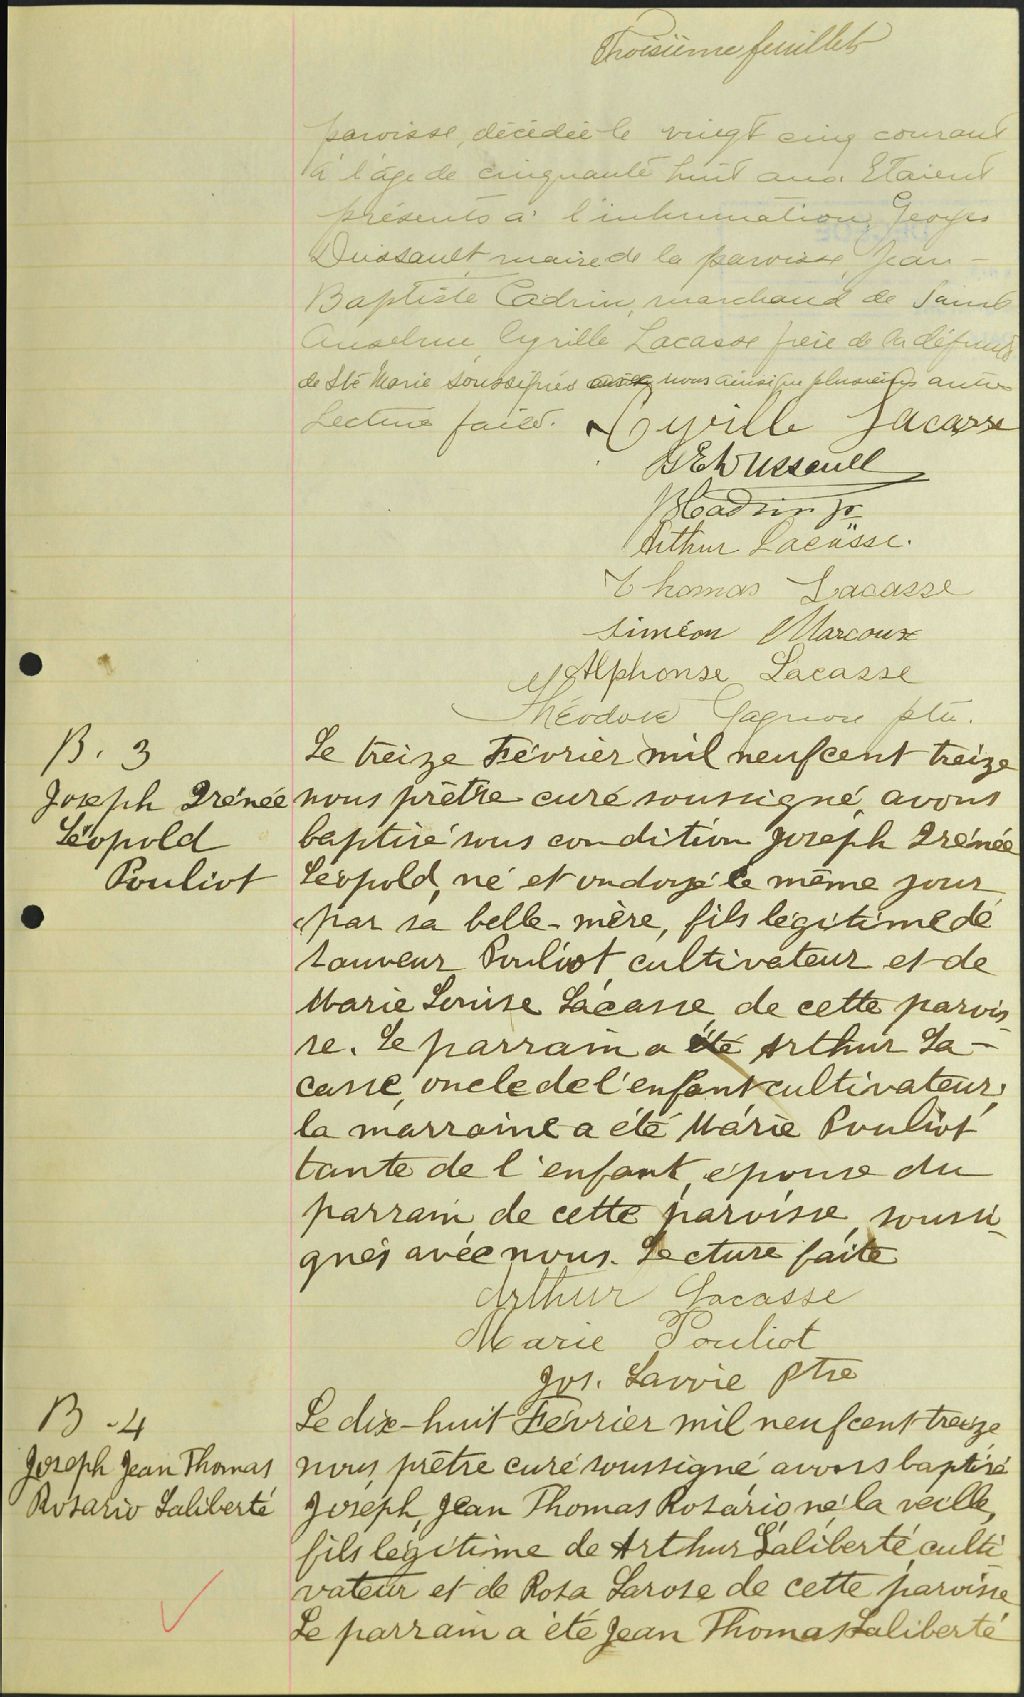 Troisième feuillet
paroisse, décédée le vingt cinq courant
à l'âge de cinquante huit ans. Etaient
présents à l'inhumation, Georges
Dussault, maire de la paroisse, Jean-
Baptiste Cadrin, marchand de Saint
Anselme, Cyrille Lacasse frère de la défunte
de Ste Marie soussignés nous ainsi que plusieurs autres
Lecture faite.
Cyrille Lacasse
G E Dussault
JB Cadrin jr
Arthur Lacasse.
Thomas Lacasse
Siméon Marcoux
Alphonse Lacasse
Théodore Gagnon ptre.
B. 3
Joseph Irénée
Léopold
Pouliot
Le treize Février mil neuf cent treize
nous prêtre curé soussigné, avons
baptisé sous condition Joseph Irénée
Léopold, né et ondoyé le même jour
par sa belle-mère, fils légitime de
Sauveur Pouliot, cultivateur et de
Marie Louise Lacasse, de cette parois-
se. Le parrain a été Arthur La-
casse, oncle de l'enfant, cultivateur;
la marraine a été Marie Pouliot
tante de l'enfant, épouse du
parrain de cette paroisse, soussi-
gnés avec nous. Lecture faite
Arthur Lacasse
Marie Pouliot
Jos. Lavoie Ptre
B - 4
Joseph Jean Thomas
Rosario Laliberté
Le dix-huit Février mil neuf cent treize
nous prêtre curé soussigné avons baptisé
Joseph, Jean Thomas Rosario, né la veille,
fils légitime de Arthur Laliberté, culti
vateur et de Rosa Larose de cette paroisse
Le parrain a été Jean Thomas Laliberté